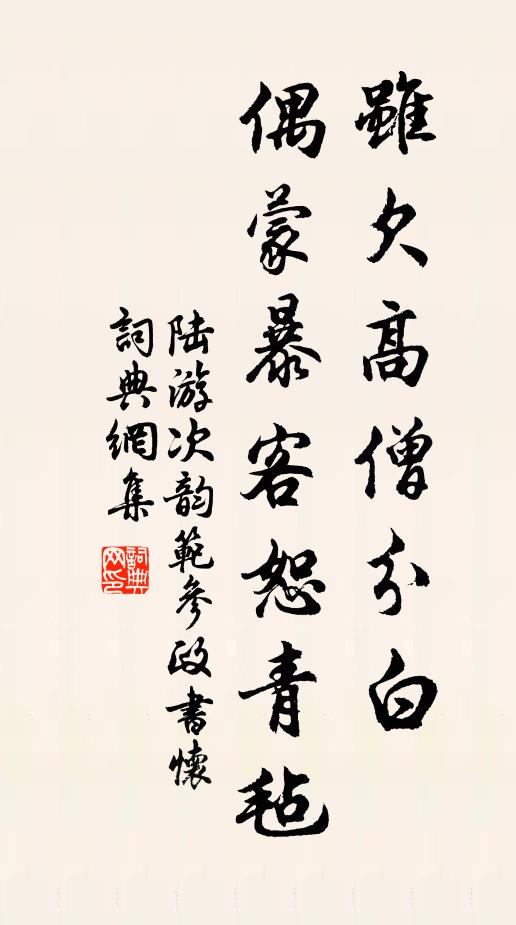 雖欠高僧分白
偶蒙暴客恕青毡
陆游次韵範參政書懷
詞典網集
詞典网印